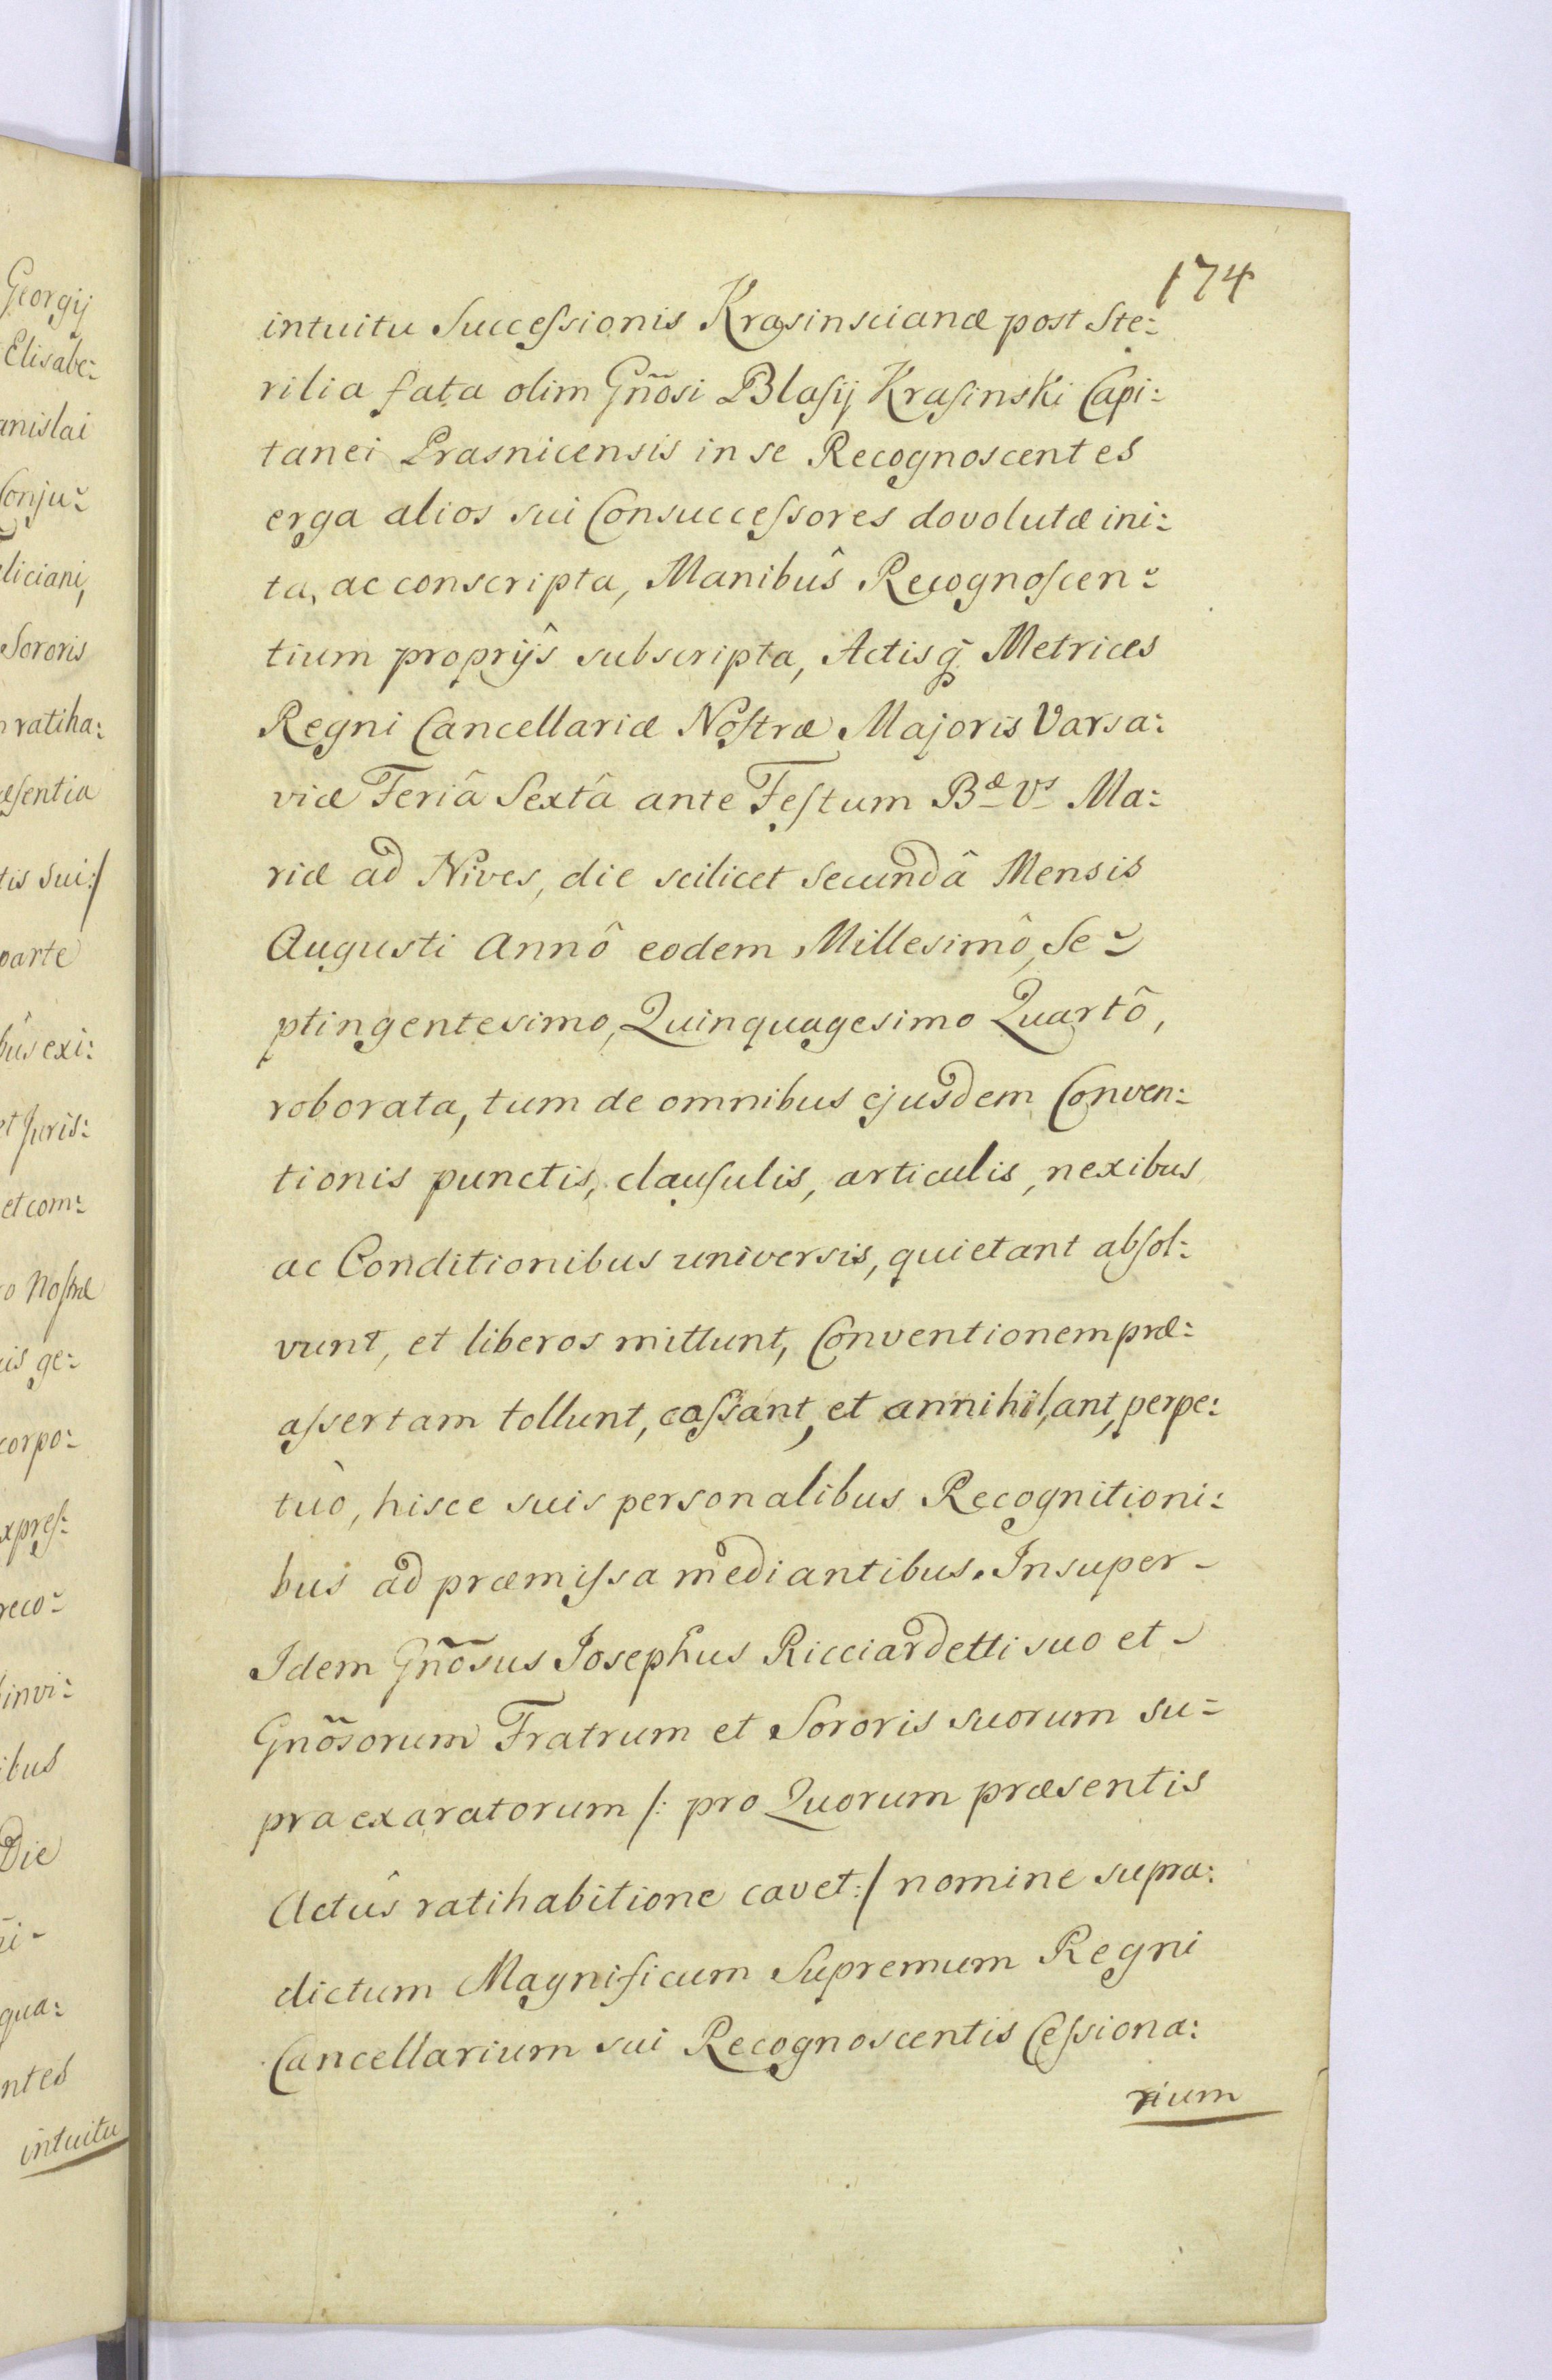 Georgij
Elisabe:
anislai
Conju:
eliciani,
Sororis
ratiha:
æsentia
tis sui:/
parte
bûs exi:
et Juris:
et com:
o Nostræ
uis ge:
corpo:
xpres:
reco:
invi:
ibus
Die
qua:
ntes
intuitu
174
intuitu Successionis Krasinscianæ post Ste:
rilia fata olim Gñosi Blasij Krasinski Capi:
tanei Prasnicensis in se Recognoscentes
erga alios sui Consuccessores dovolutæ ini:
ta, ac conscripta, Manibûs Recognoscen:
tium proprijs subscripta, Actisq̃ Metrices
Regni Cancellariæ Nostræ Majoris Varsa:
viæ Feriâ Sextâ ante Festum Bæ Vs Ma:
riæ ad Nives, die scilicet secundâ Mensis
Augusti Annô eodem Millesimô, Se:
ptingentesimo, Quinquagesimo Quartô,
roborata, tum de omnibus ejusdem Conven:
tionis punctis, clausulis, articulis, nexibus
ac Conditionibus universis, quietant absol:
vunt, et liberos mittunt, Conventionem præ:
assertam tollunt, cassant, et annihilant, perpe:
tuò, hisce suis personalibus Recognitioni:
bus ad præmissa mediantibus. Insuper-
Idem Gñosus Josephus Ricciardetti suo et-
Gñosorum Fratrum et Sororis suorum su:
pra exaratorum /: pro Quorum præsentis
Actûs ratihabitione cavet:/ nomine supra:
dictum Magnificum Supremum Regni
Cancellarium sui Recognoscentis Cessiona:
rium